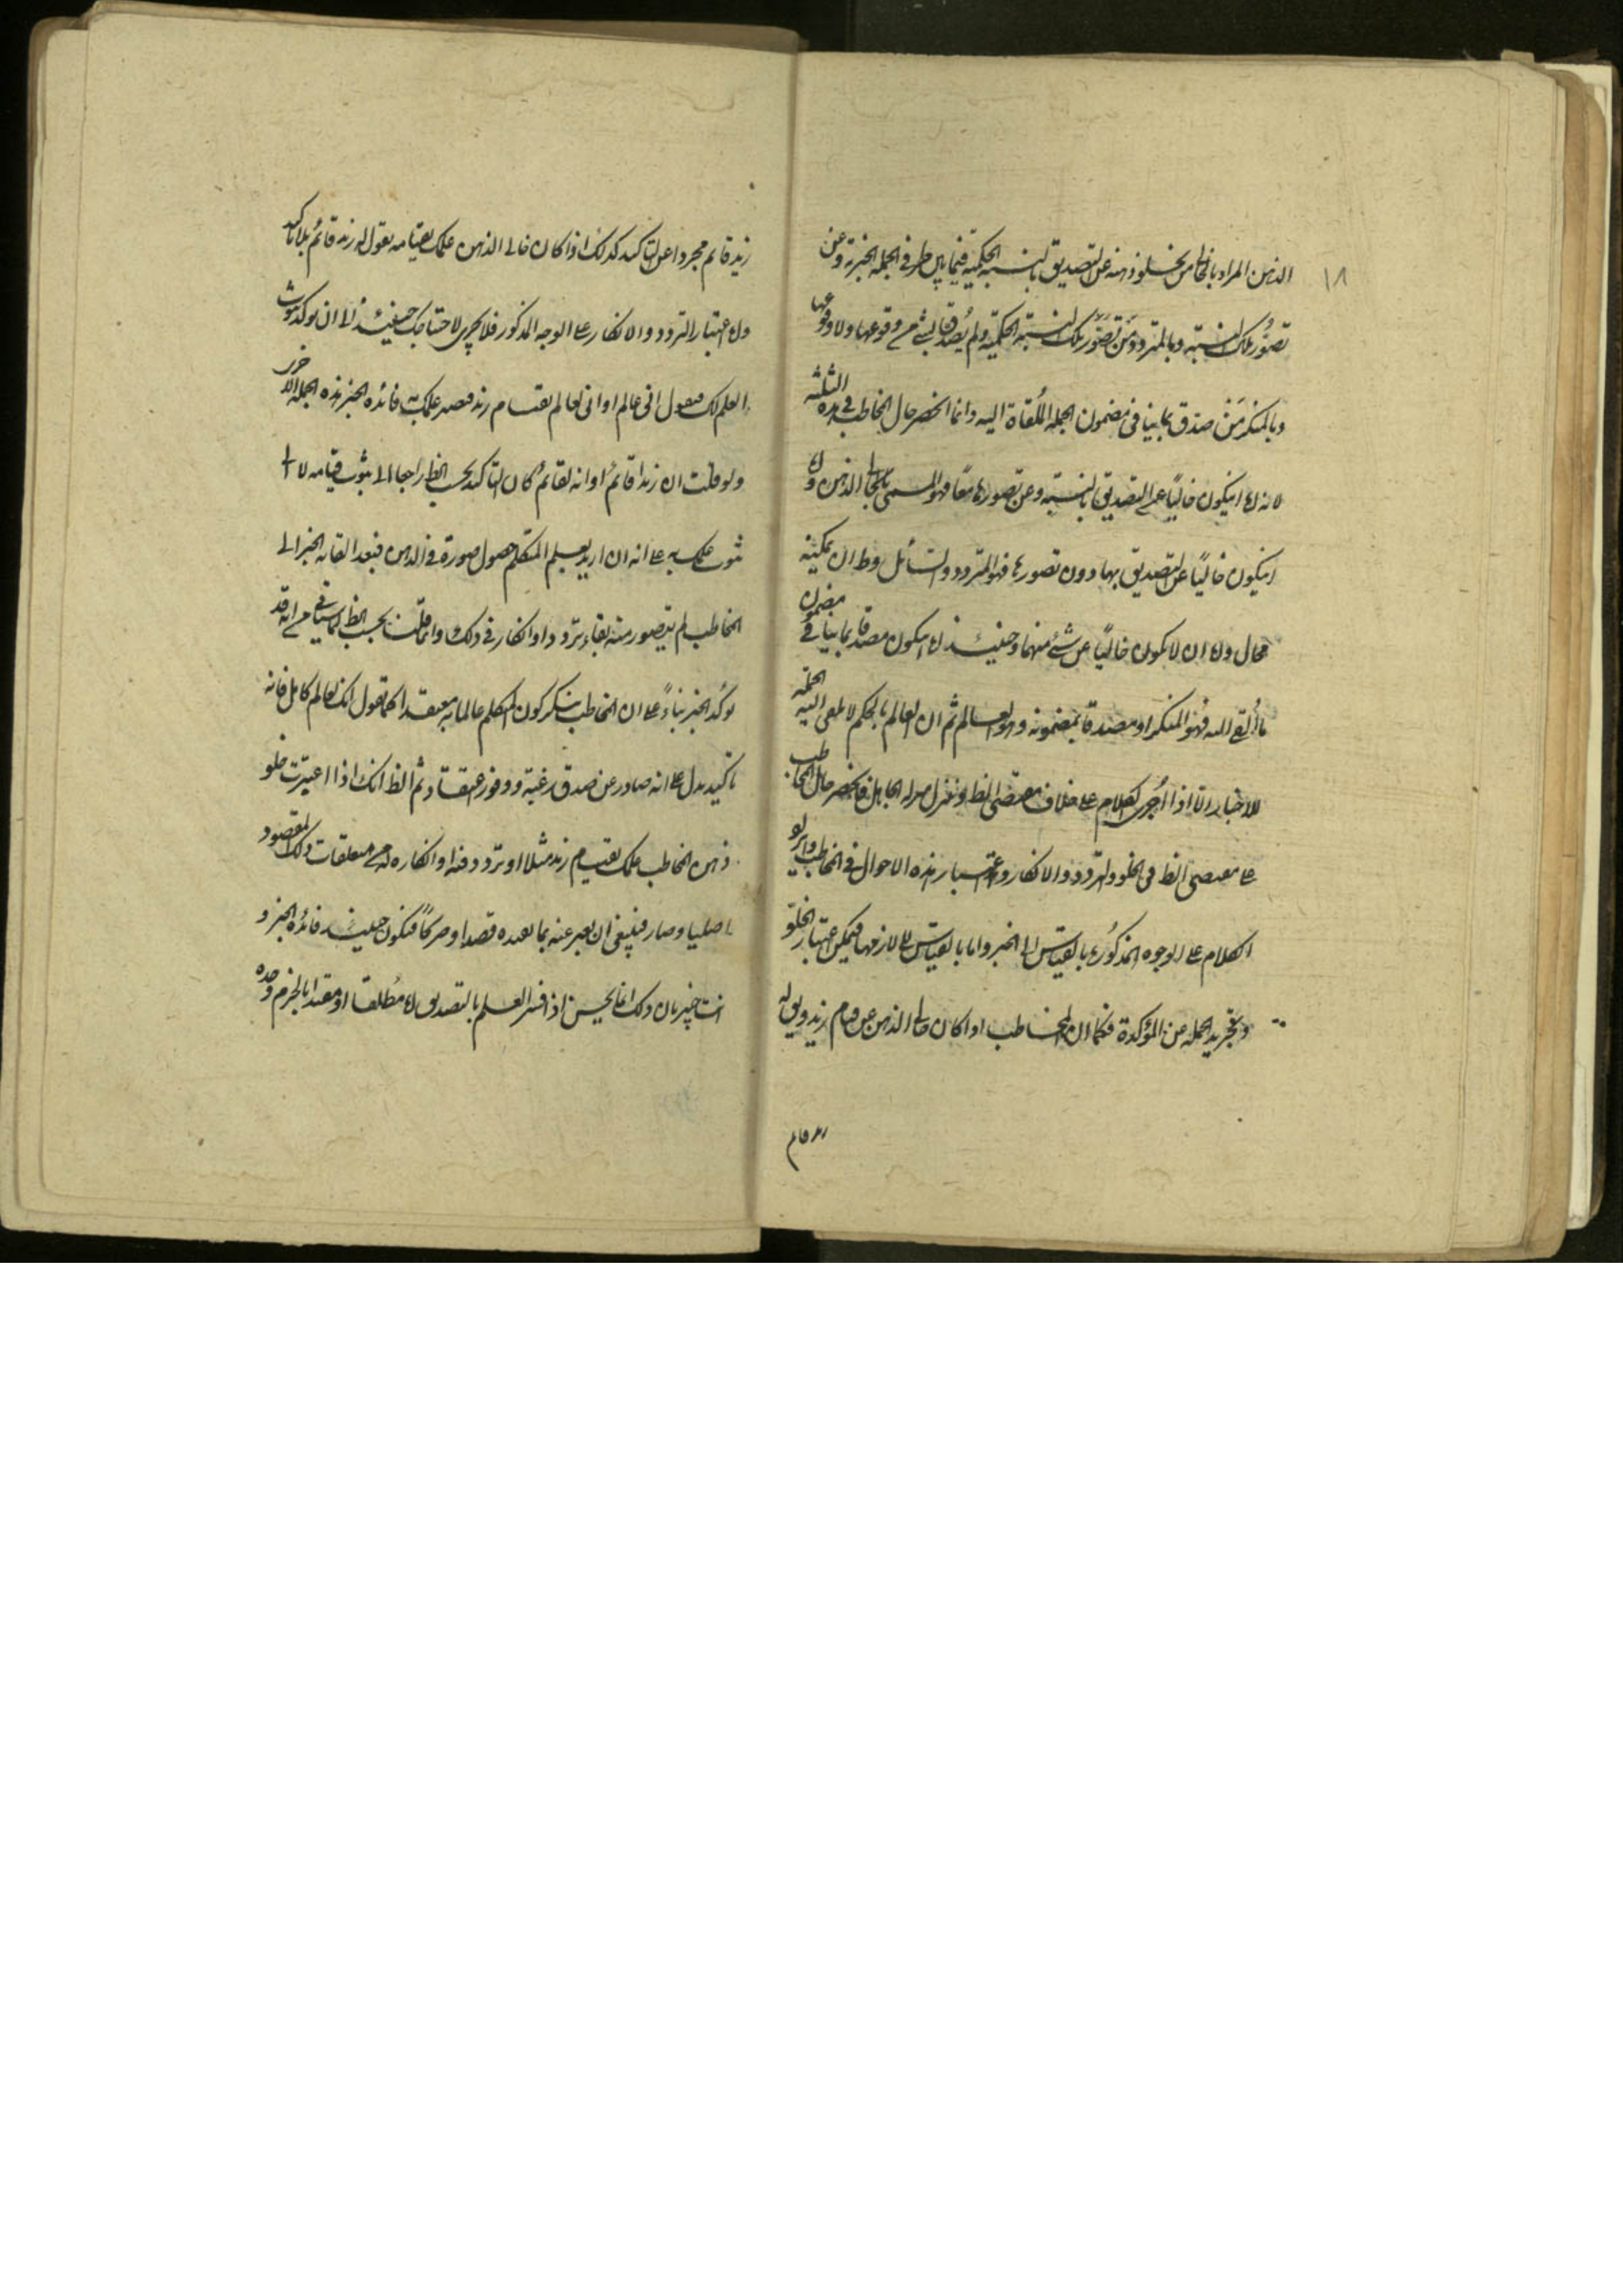 ١٨
الذهن المراد بالخالى من يخلو ذهنه عن التصديق بالنسبة الحكمية فيما بين طرفى الجملة الخبرية وعن
تصوُّر تلك النسبة وبالمتردد مَن تصَوَّر تلك النسبة الحكميّة ولم يُصدّق بشئ من وقوعها ولا وقوعها
وبالمنكر مَن صدق بما ينافى مضمون الجملة المُلقاة اليه وانما انحصر حال المخاطب فى هذه الثلثة
لانه اما ان يكون خاليًا عن التصديق بالنسبة وعن تصورها معًا فهو المسمى بالخالى الذهن واما
ان يكون خاليًا عن التصديق بها دون تصورها فهو المتردد والسائل وط ان عكسه
محال واما ان لا يكون خاليًا عن شئ منهما وحينئذ اما ان يكون مصدقا بما ينافى مضمون
ما أُلقى اليه فهو المنكر او مصدقا بمضمونه وهو العالم ثم ان العالم بالحكم لا يلقى اليه الجملة
للاخبار الا اذا اُجرى الكلام على خلاف مقتضى الظ ونزل منزله الجاهل فانحصر حال المخاطب
على مقتضى الظ فى الخلو والتردد والانكار واعتبار هذه الاحوال فى المخاطب وايراد
الكلام على الوجوه المذكورة بالقياس الى الخبر واما بالقياس الى لازمها فيمكن اعتبار الخلو
وتجريد الجملة عن المؤكدة فكما ان المخاطب اذا كان خالى الذهن عن قيام زيد ويق له
زيد قائم
زيد قائم مجردا عن التاكيد كذلك اذا كان خالى الذهن عن علمك بقيامه يقول له زيد قائم بلا تاكيد
واما اعتبار التردد والانكار على الوجه المذكور فلا يجرى لاحتياجك حينئذ الى ان يوكد ثبوت
العلم لك فيقول انى عالم او انى لعالم بقيام زيد فيصير علمك به فائده الخبر هذه الجملة الاخرى
ولو قلت ان زيدا قائم او انه لقائم كان التاكيد بحسب الظ راجعا الى ثبوت قيامه لا الى
ثبوت علمك به على انه ان اريد بعلم المتكلم حصول صورة فى الذهن فبعد القائه الخبر الى
المخاطب لم يتصور منه بقاء تردد او انكار فى ذلك وانما قلنا بحسب الظ لما سياتى من انه قد
يوكد الخبر بناءً على ان المخاطب ينكر كون المتكلم عالما به معتقدا كما تقول انك لعالم كامل فانه
تاكيد يدل على انه صادر عن صدق رغبة ووفور اعتقاد ثم الظ انك اذا اعتبرت خلو
ذهن المخاطب عن علمك بقيام زيد مثلا او تردده فيه او انكاره له من متعلقات ذلك المقصود
اصليا وصار فينبغى ان يعبر عنه بما يفيده قصدا وصريحًا فيكون حينئذ فائده الخبر و
انت خبير بان ذلك انما يحسن اذا فسر العلم بالتصديق اما مُطلقا او مقيدا بالجزم وحده